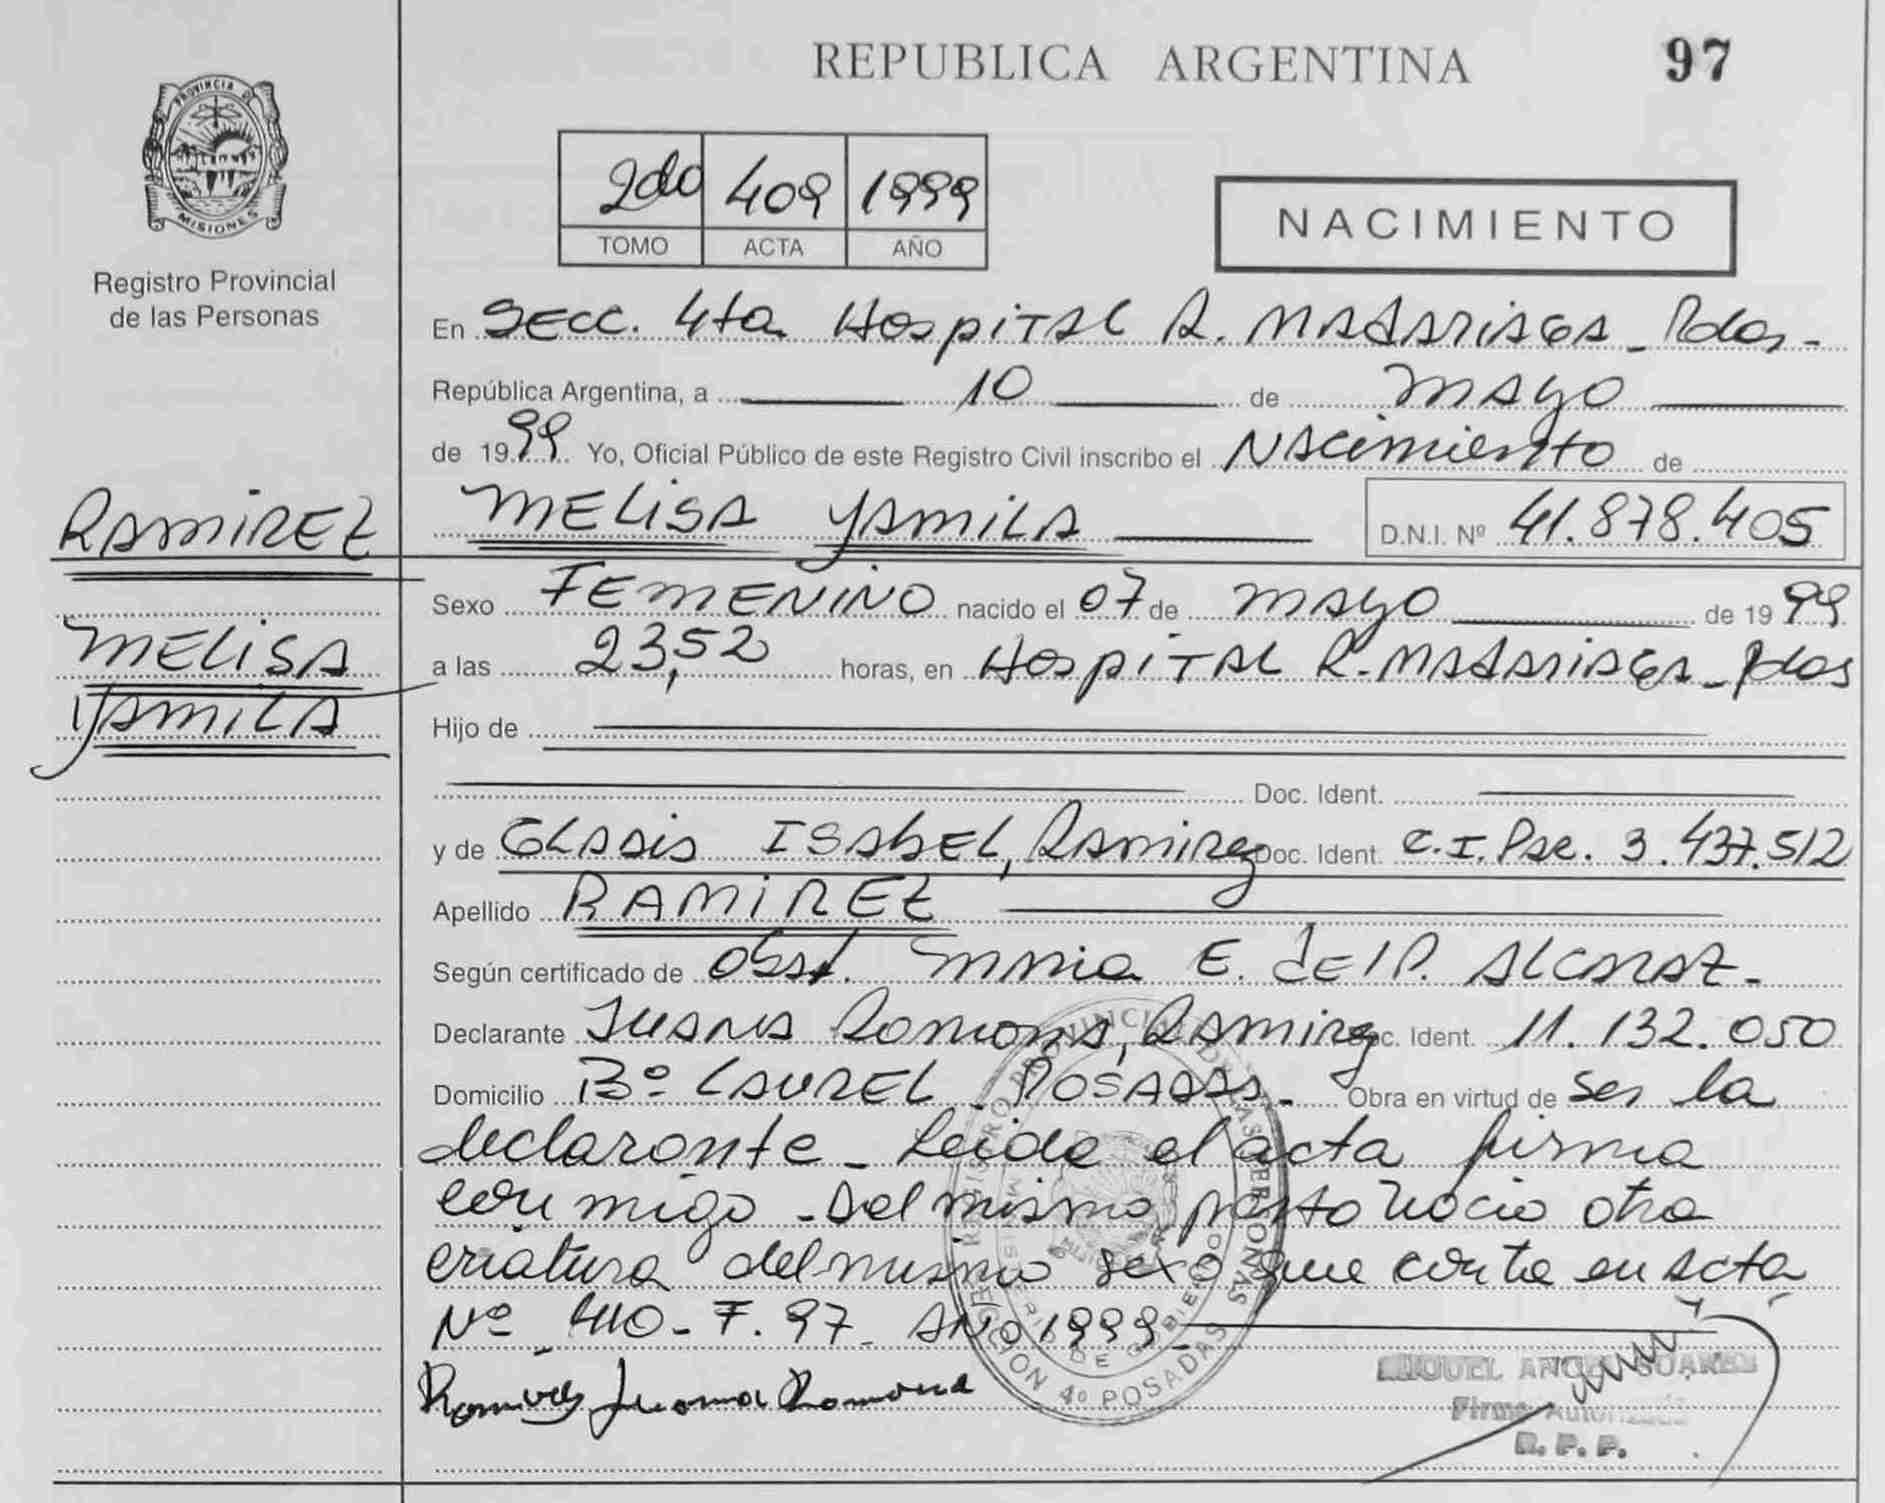 REPUBLICA ARGENTINA 97
PROVINCIA DE
MISIONES
Registro Provincial
de las Personas
2do 409 1999
TOMO ACTA AÑO
NACIMIENTO
En Secc. 4ta Hospital R. Madariaga - Pdas -
República Argentina, a 10 de Mayo
de 1999 Yo, Oficial Público de este Registro Civil inscribo el Nacimiento de
RAMIREZ
MELISA YAMILA D.N.I. Nº 41.878.405
Sexo FEMENINO nacido el 07 de Mayo de 1999
MELISA
YAMILA
a las 23,52 horas, en Hospital R. Madariaga - Pdas
Hijo de
Doc. Ident.
y de Gladis Isabel, Ramirez Doc. Ident. C.I. Par. 3.437.512
Apellido RAMIREZ
Según certificado de Obst. E. de Alcaraz -
Declarante Juana Ramona, Ramirez Doc. Ident. 11.132.050
Domicilio Bº Laurel - Posadas - Obra en virtud de ser la
declarante - Leida el acta firma
conmigo - Del mismo parto nacio otra
criatura del mismo sexo que conta en acta
Nº 410 - F. 97 - Año 1999
Ramirez Juana Ramona
REGISTRO PROVINCIAL DE LAS PERSONAS
MINISTERIO DE GOBIERNO
SECCION 4º POSADAS
MIGUEL ANGEL SUAREZ
Firma Autorizada
R. P. P.